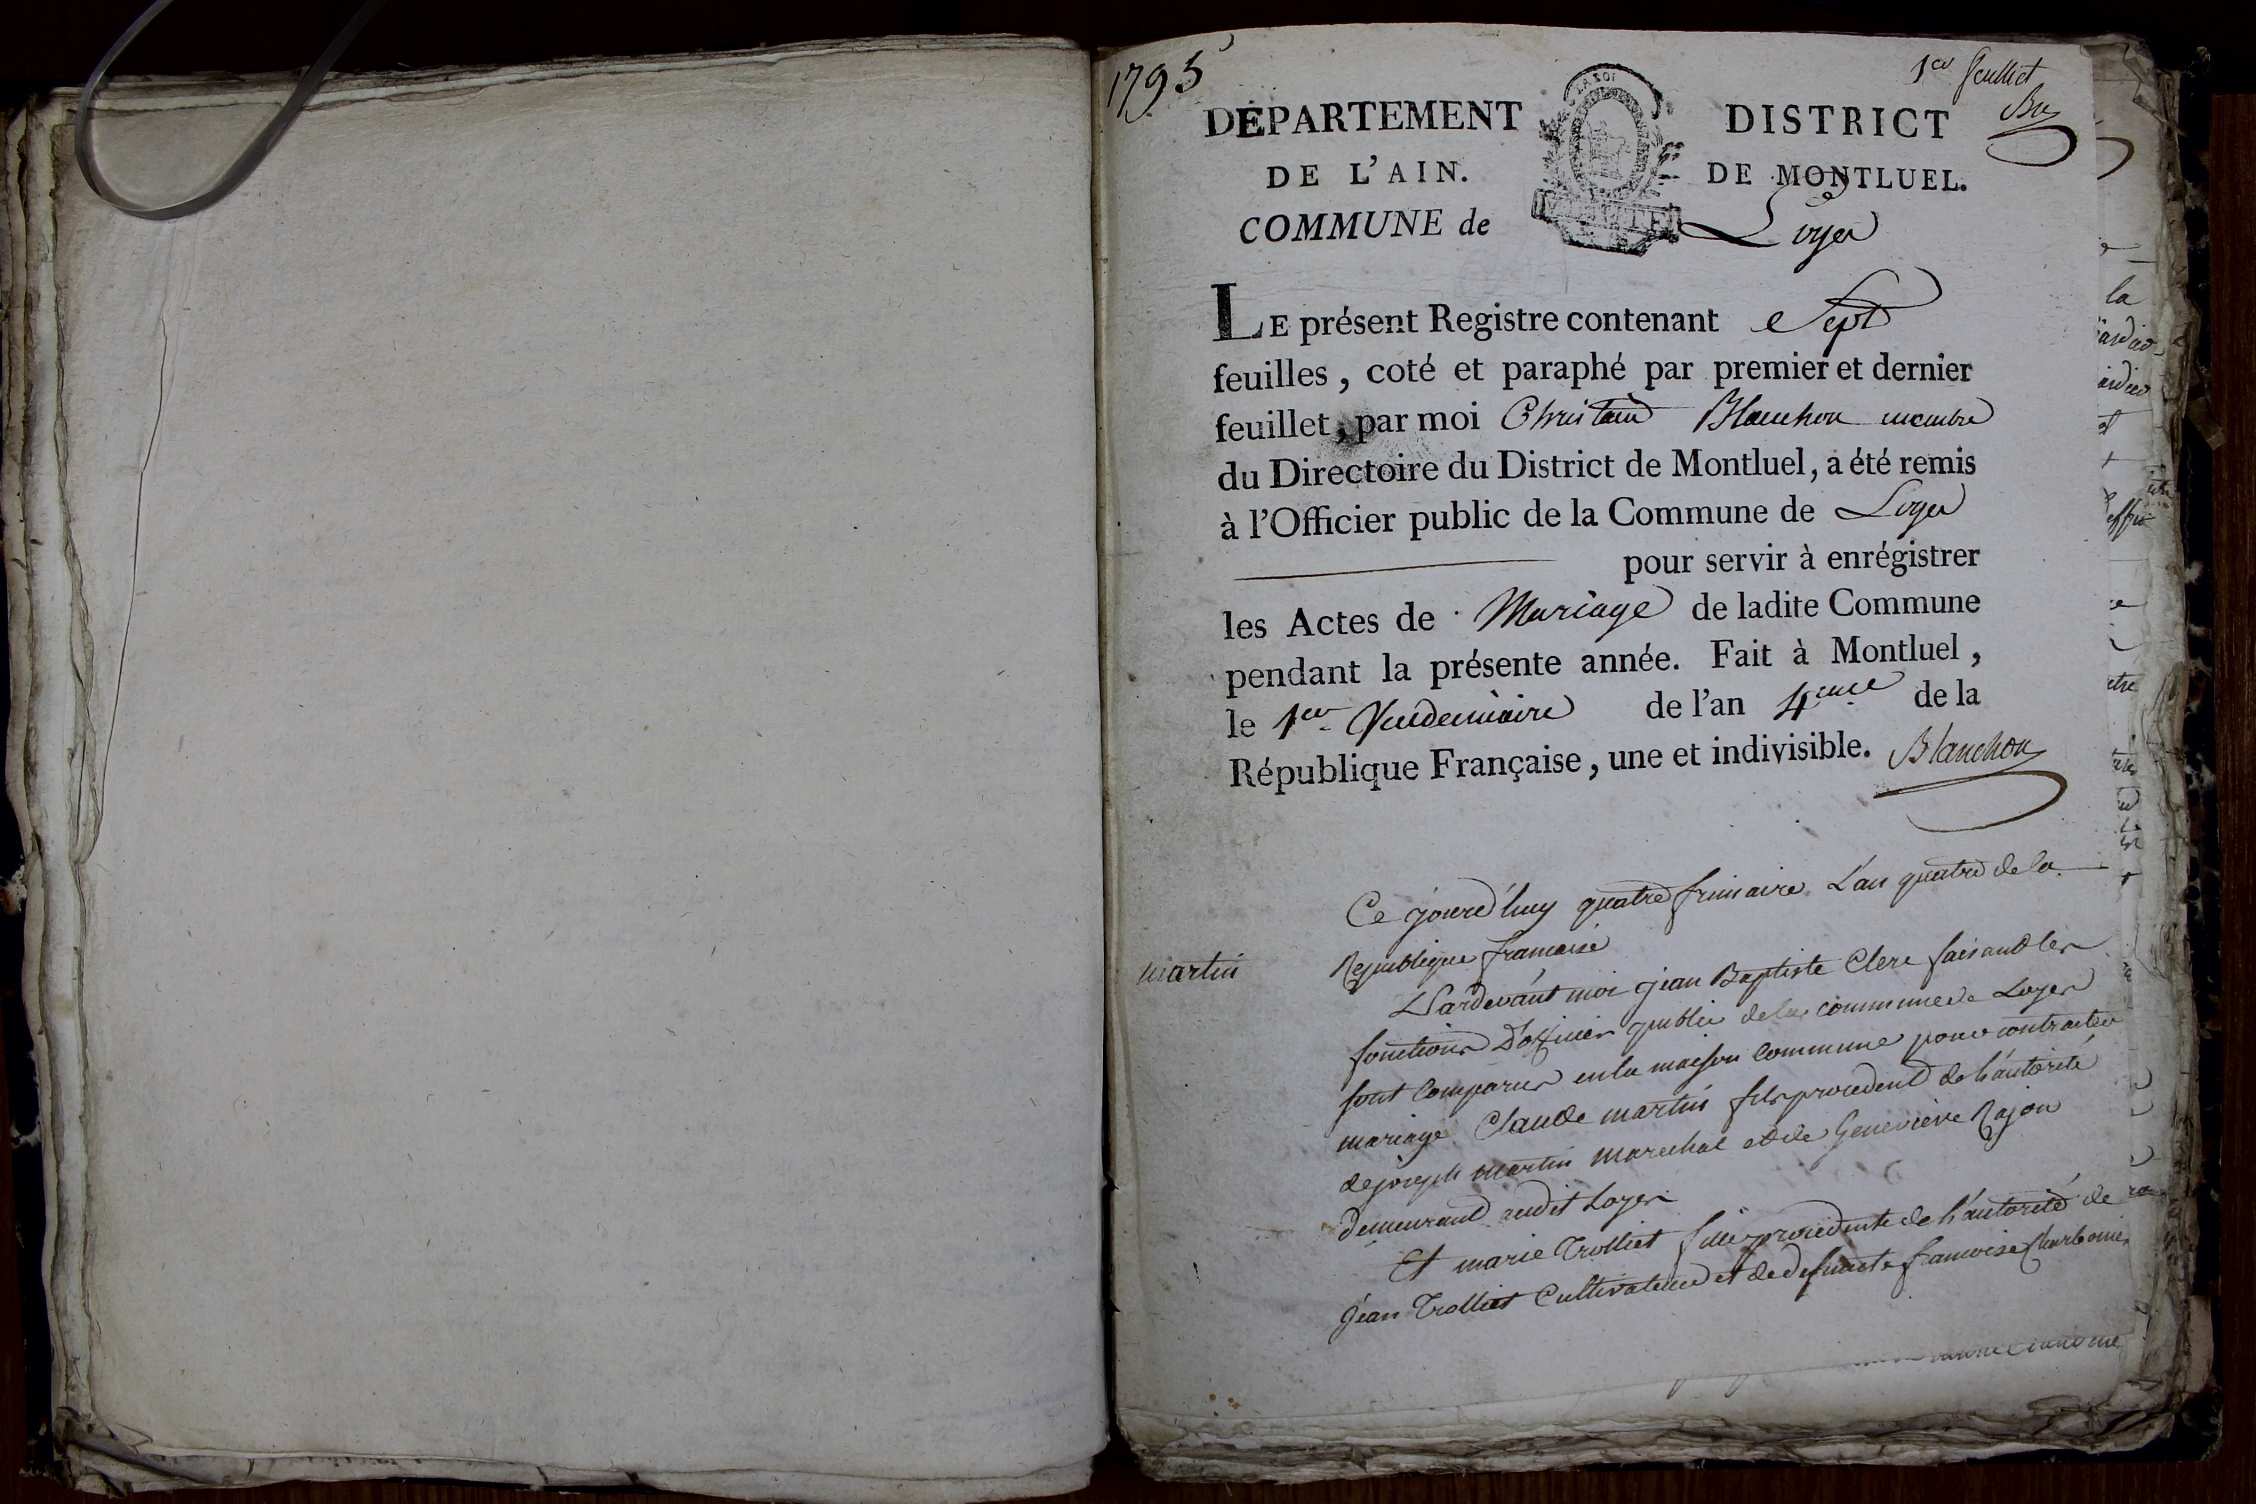 1795
1er feuillet
Bn
DÉPARTEMENT
DE L'AIN.
COMMUNE de
DISTRICT
DE MONTLUEL.
Loyes
LE présent Registre contenant Sept
feuilles, coté et paraphé par premier et dernier
feuillet, par moi Christain Blanchon membre
du Directoire du District de Montluel, a été remis
à l'Officier public de la Commune de Loyes
pour servir à enrégistrer
les Actes de Mariage de ladite Commune
pendant la présente année. Fait à Montluel,
le 1er Vendemiaire de l'an 4eme de la
République Française, une et indivisible. Blanchon
martin
Ce jourd'huy quatre frimaire L'an quatre de la
Republique francaise
Pardevant moi jean Baptiste Clerc faisant les
fonctions D'officier public de la commune de Loyes
sont comparus en la maison commune pour contracter
mariage Claude martin fils procedent de l'autorité
de joseph martin marechal et de Geneviève Rajon
demeurant audit Loyes
Et marie Trolliet fille procedente de l'autorité de
jean Trolliet Cultivateur et de defuncte francoise Charbonier